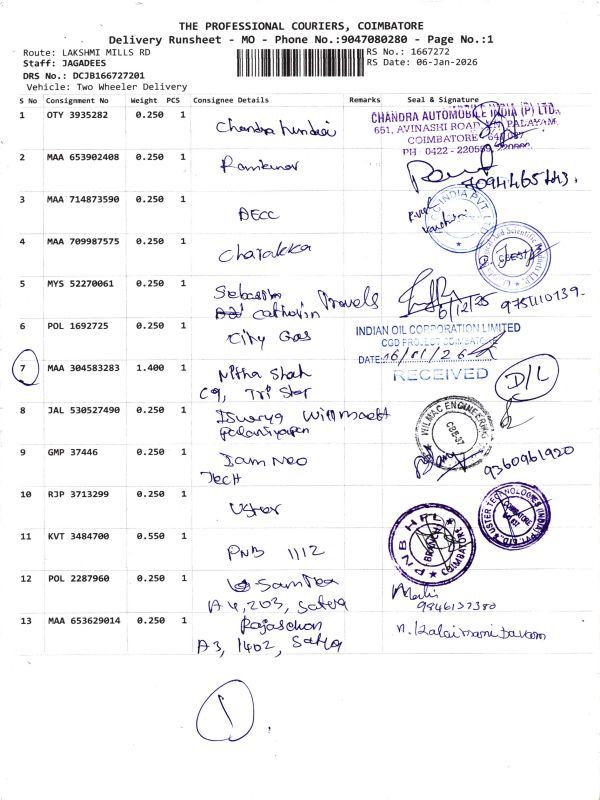 THE PROFESSIONAL COURIERS, COIMBATORE
Delivery Runsheet - MO - Phone No.:9047080280 - Page No.:1
Route: LAKSHMI MILLS RD
RS No.: 1667272
Staff: JAGADEES
RS Date: 06-Jan-2026
DRS No.: DCJB166727201
Vehicle: Two Wheeler Delivery
S No Consignment No Weight PCS Consignee Details Remarks Seal & Signature
1 OTY 3935282 0.250 1 Chandra hundai
CHANDRA AUTOMOBILE INDIA (P) LTD.,
651, AVINASHI ROAD
COIMBATORE
PH : 0422 -
2 MAA 653902408 0.250 1 Ramkumar
3 MAA 714873590 0.250 1 AECC
4 MAA 709987575 0.250 1
5 MYS 52270061 0.250 1 Sebastin Travels
9751110139.
6 POL 1692725 0.250 1 City Gas
INDIAN OIL CORPORATION LIMITED
CGD PROJECT COIMBATORE
DATE: 06/01/26
RECEIVED
7 MAA 304583283 1.400 1 Nitha Shah
C9, Tri Star
D/L
8 JAL 530527490 0.250 1
WILMAC ENGINEERING
CBE-37
9 GMP 37446 0.250 1 Iam Neo
Tech
9360961920
10 RJP 3713299 0.250 1 Uster
USTER TECHNOLOGIES (INDIA) PVT. LTD.
11 KVT 3484700 0.550 1 PNB 1112
PNB HFL
BRANCH
COIMBATORE
12 POL 2287960 0.250 1
A4, 203, Satya
9846137380
13 MAA 653629014 0.250 1
A3, 1402, Satya
1